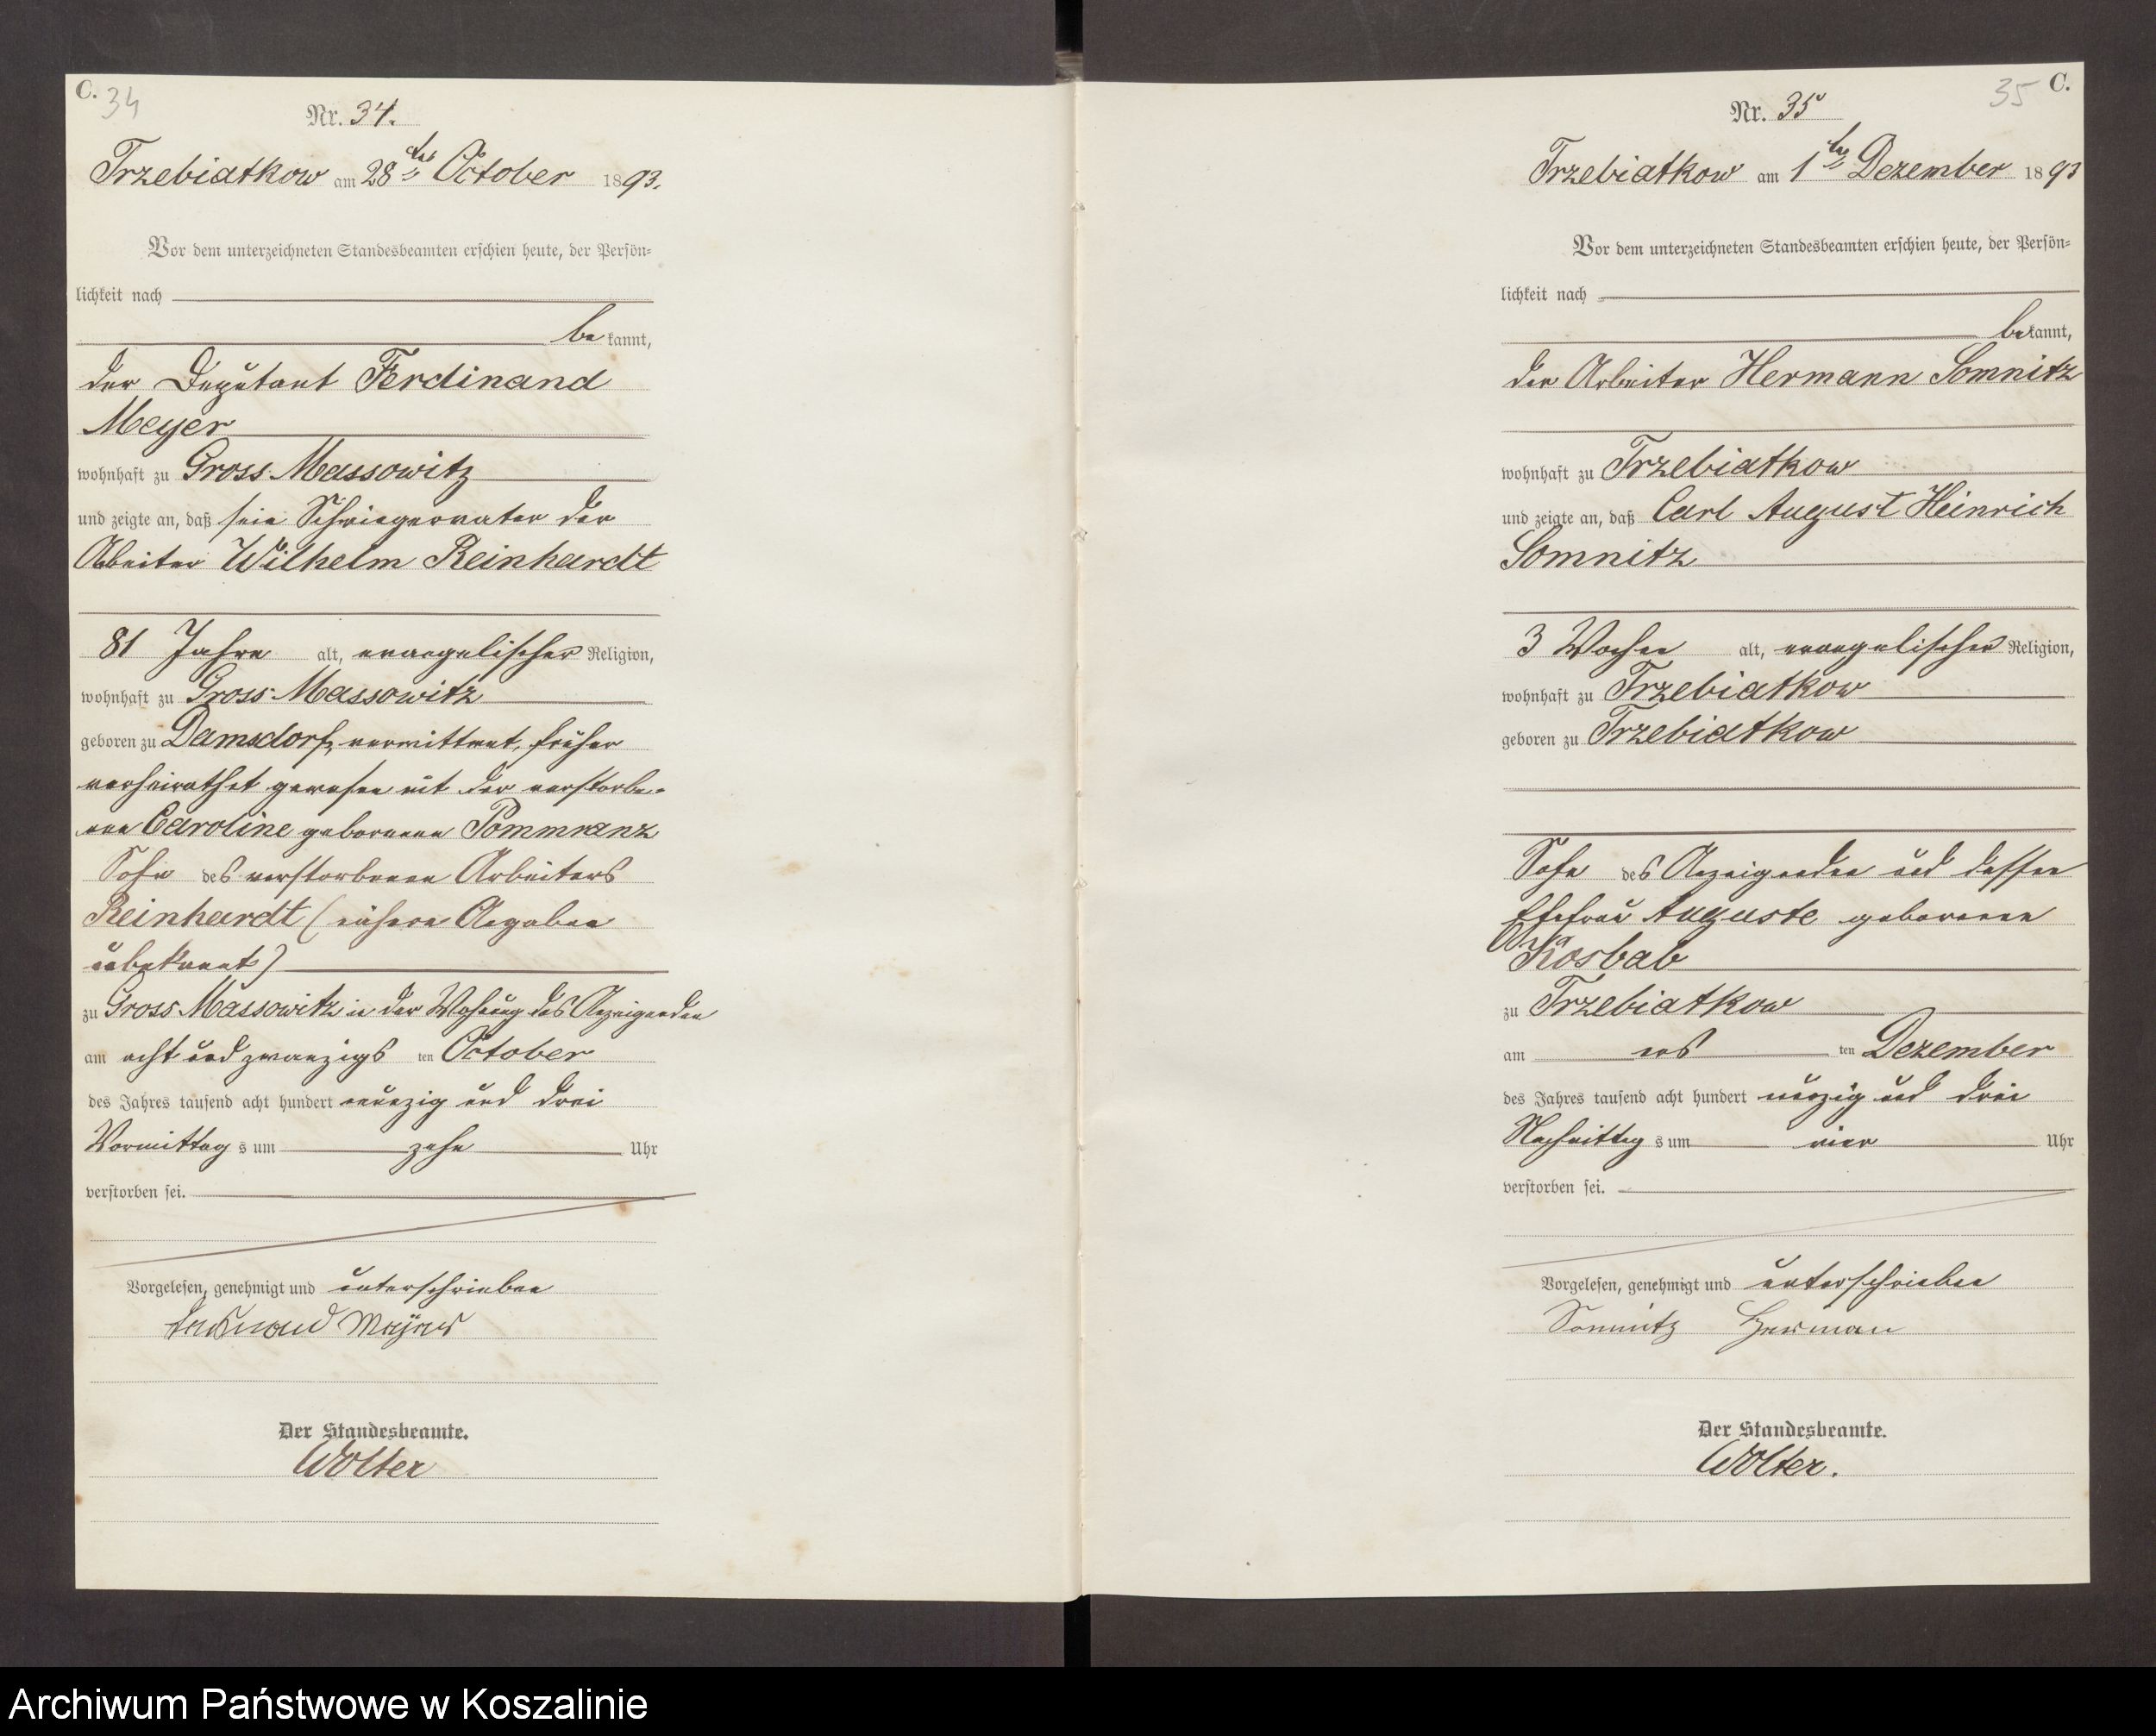 C. 34
Nr. 34.
Trzebiatkow am 28ten October 1893.
Vor dem unterzeichneten Standesbeamten erschien heute, der Persön=
lichkeit nach
be kannt,
der Deputant Ferdinand
Meyer
wohnhaft zu Gross-Massowitz
und zeigte an, daß sein Schwiegervater der
Arbeiter Wilhelm Reinhardt
81 Jahre alt, evangelischer Religion,
wohnhaft zu Gross-Massowitz
geboren zu Damsdorf, verwittwet, früher
verheirathet gewesen mit der verstorbe-
nen Caroline geborenen Pommranz
Sohn des verstorbenen Arbeiters
Reinhardt (nähere Angaben
unbekannt)
zu Gross Massowitz in der Wohnung des Anzeigenden
am acht und zwanzigs ten October
des Jahres tausend acht hundert neunzig und drei
Vormittag s um zehn Uhr
verstorben sei.
Vorgelesen, genehmigt und unterschrieben
Ferdinand Meyer
Der Standesbeamte.
Wolter
35 C.
Nr. 35
Trzebiatkow am 1ten Dezember 1893
Vor dem unterzeichneten Standesbeamten erschien heute, der Persön=
lichkeit nach
be kannt,
der Arbeiter Hermann Somnitz
wohnhaft zu Trzebiatkow
und zeigte an, daß Carl August Heinrich
Somnitz
3 Wochen alt, evangelischer Religion,
wohnhaft zu Trzebiatkow
geboren zu Trzebiatkow
Sohn des Anzeigenden und dessen
Ehefrau Auguste geborenen
Kosbab
zu Trzebiatkow
am ers ten Dezember
des Jahres tausend acht hundert neunzig und drei
Nachmittag s um vier Uhr
verstorben sei.
Vorgelesen, genehmigt und unterschrieben
Somnitz Herman
Der Standesbeamte.
Wolter.
Archiwum Państwowe w Koszalinie